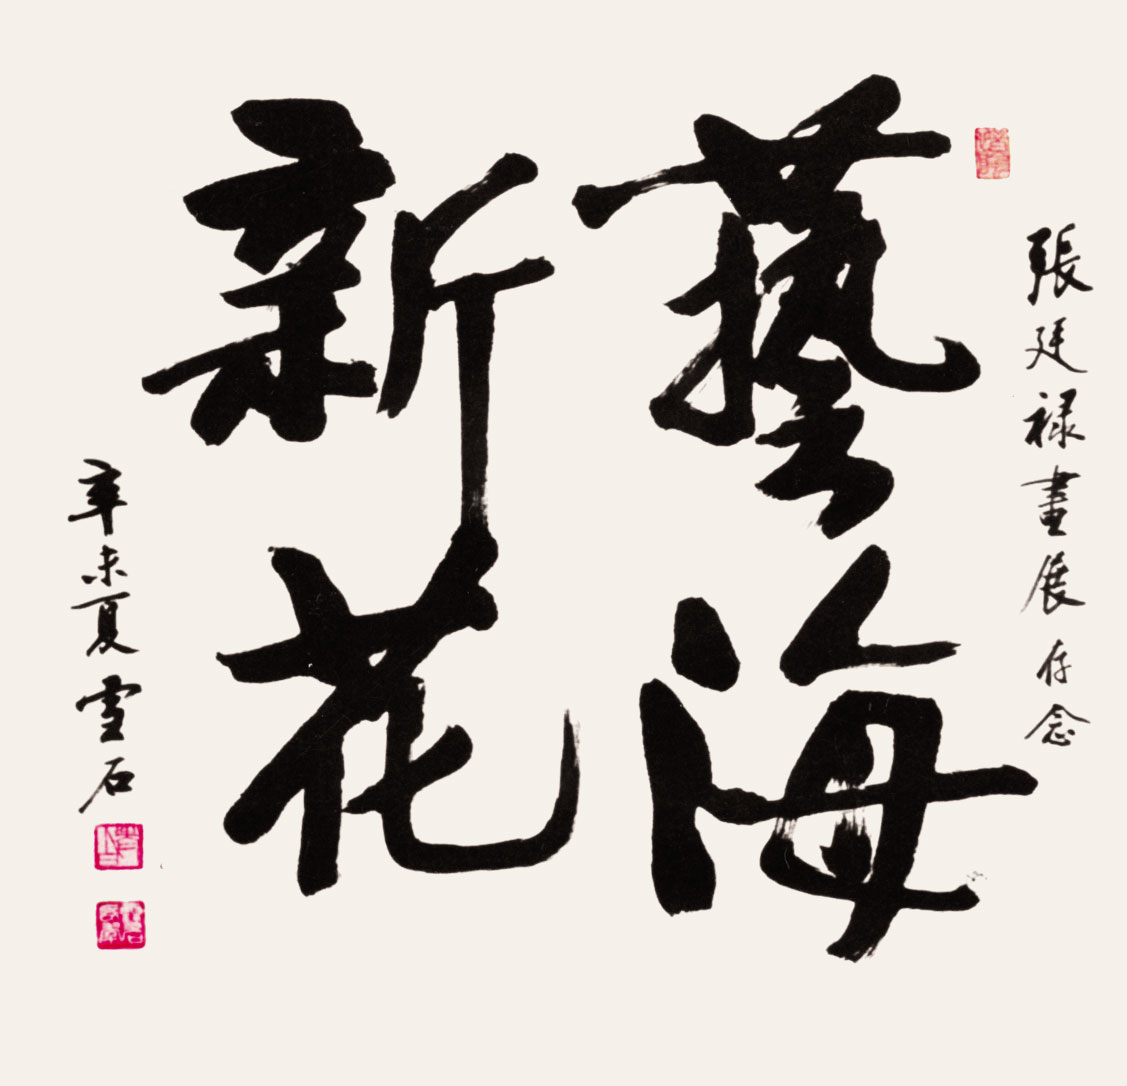 張廷禄畫展存念
藝海
新花
辛未夏雪石